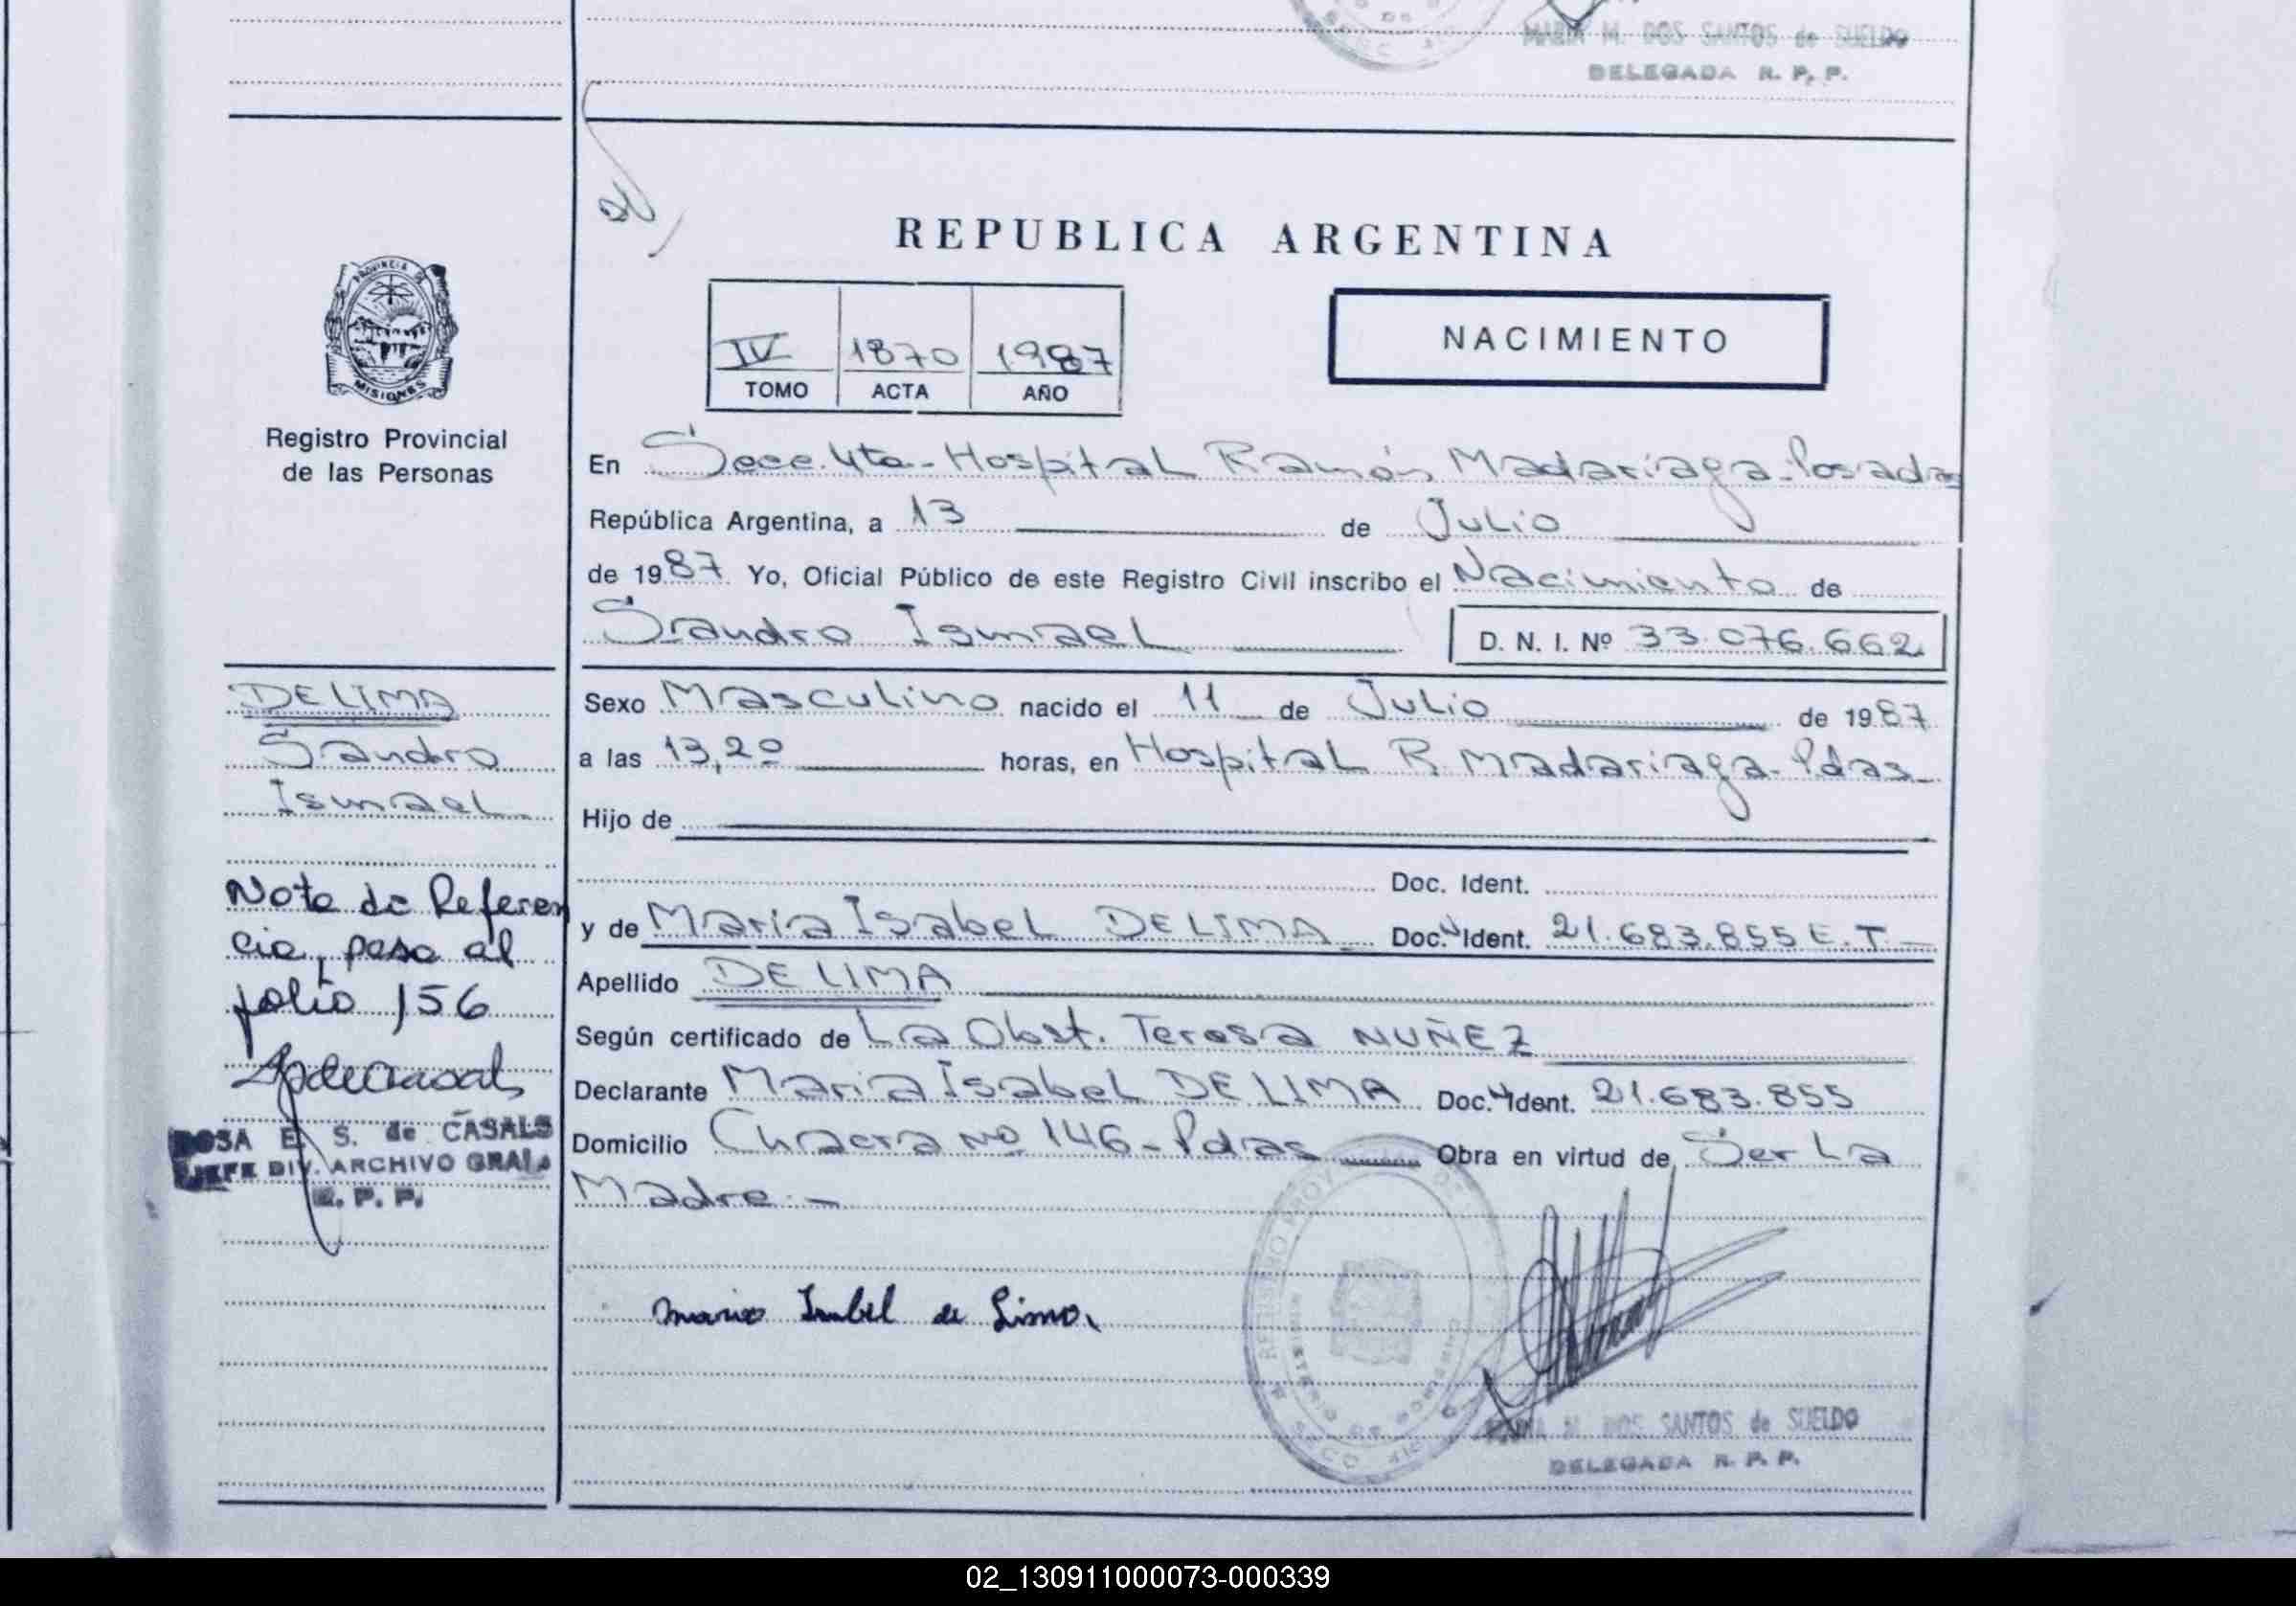 MARIA M. DOS SANTOS de SUELDO
DELEGADA R. P. P.
REPUBLICA ARGENTINA
PROVINCIA DE
MISIONES
Registro Provincial
de las Personas
IV 1870 1987
TOMO ACTA AÑO
NACIMIENTO
En Secc. 4ta - Hospital Ramón Madariaga - Posadas
República Argentina, a 13 de Julio
de 1987 Yo, Oficial Público de este Registro Civil inscribo el Nacimiento de
Sandro Ismael
D. N. I. Nº 33.076.662
DE LIMA
Sandro
Ismael
Nota de Referen
cia, pasa al
folio 156
ROSA E. S. de CASALS
JEFE DIV. ARCHIVO GRAL.
R. P. P.
Sexo Masculino nacido el 11 de Julio de 1987
a las 13,20 horas, en Hospital R. Madariaga - Pdas -
Hijo de
Doc. Ident.
y de Maria Isabel DE LIMA - Doc. Ident. 21.683.855 E.T. -
Apellido DE LIMA
Según certificado de La Obst. Teresa NUÑEZ
Declarante Maria Isabel DE LIMA Doc. Ident. 21.683.855
Domicilio Chacra Nº 146 - Pdas Obra en virtud de Ser La
Madre. -
Maria Isabel de Lima.
MARIA M. DOS SANTOS de SUELDO
DELEGADA R. P. P.
02_130911000073-000339